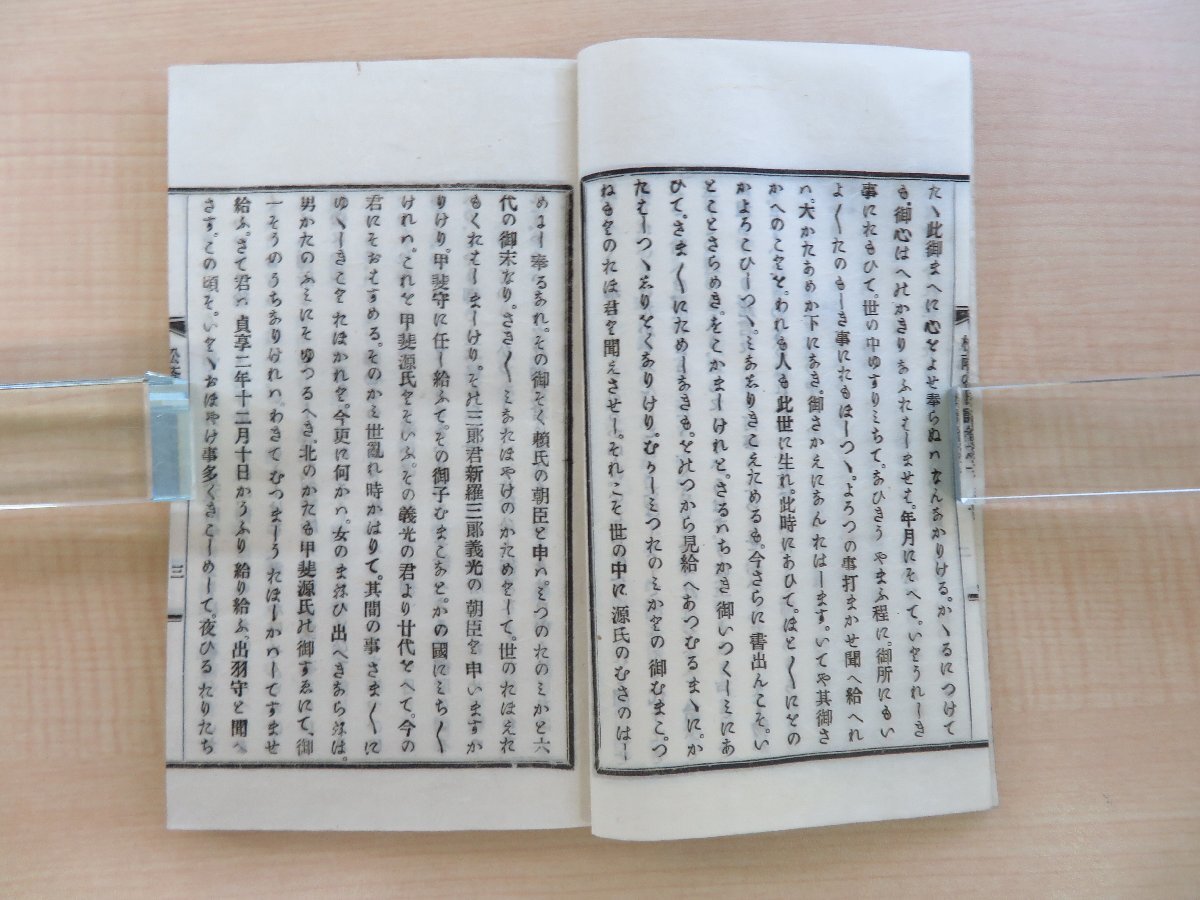 たゝ此御まへに心をよせ奉らぬハなんあかりける。かゝるにつけて
も。御心はへのかきりあふれむしませも。年月にそへて。いとうれしき
事におもひて。世の中ゆすりミちて。あひきうやまふ程に。御所にもい
よ〳〵たのもしき事におもほしつゝ。よろつの事打まかせ聞へ給へれ
ハ。大かたあめか下にあき。御さかえにあんおはします。いてや其御さ
かへのことを。われも人も此世に生れ。此時にあひて。ほと〳〵にとの
かよろこひしつゝ。ミあしりきこえためるも。今さらに書出んこそ。い
とことさらめき。をこかましけれと。さるハちかき御いつくしミにあ
ひて。さま〳〵にためしあきも。とのつから見給へあつむるまゝに。か
たむしつゝしりとくありけり。むかしミつおのミかとの御むまこ。つ
ねもとのおほ君と聞えさせし。それこそ世の中に源氏のむさのはし
めなし奉るあれ。その御そく頼氏の朝臣と申ハ。ミつのおのミかと六
代の御末なり。さき〳〵ミなおほやけのかためとして。世のおほえお
もくおむしましけり。その三郎君新羅三郎義光の朝臣と申いますか
りけり。甲斐守に任し給ふて。その御子むまこなと。かの國にミち〳〵
けれハ。これを甲斐源氏とそいふ。その義光の君より廿代をへて。今の
君にそおはすめる。そのかミ世亂れ時かはりて。其間の事さま〳〵に
ゆゝしきことおほかれと。今更に何かハ。女のまねひ出へきあらねは。
男かたのふミにそゆつるへき。北のかたも甲斐源氏の御すゑにて。御
一そうのうちありけれハ。わきてむつましうおほしかハしてすませ
給ふ。さて君ハ貞享二年十二月十日かうふり給り給ふ。出羽守と聞へ
さす。この頃そ。いとゝおほやけ事多くきこしめして。夜ひるおりたち
三